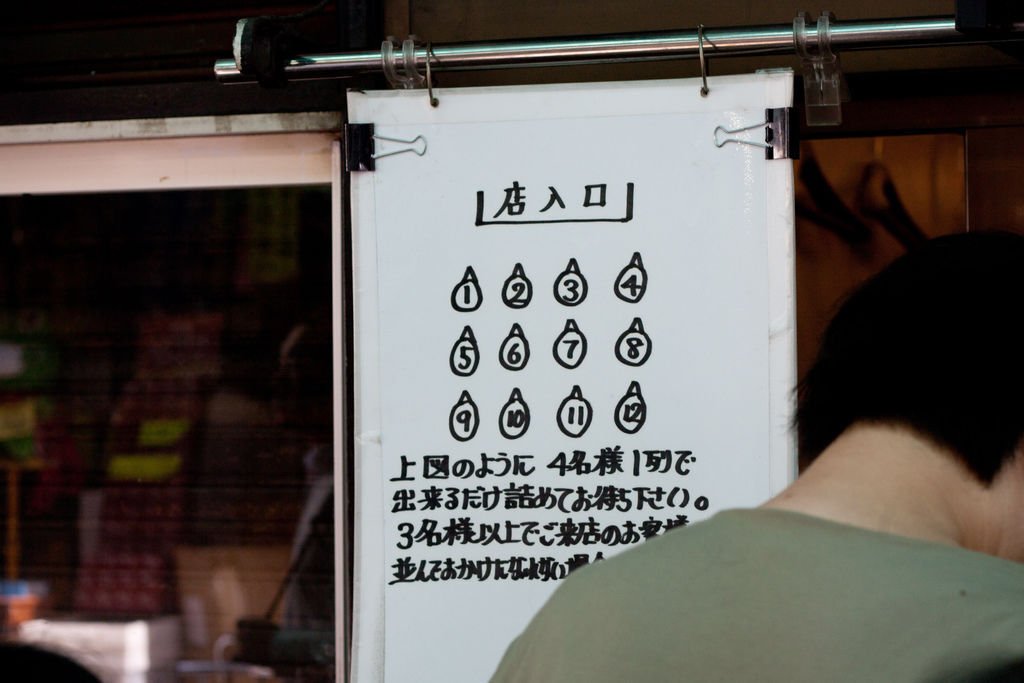 店入口
1 2 3 4
5 6 7 8
9 10 11 12
上図のように 4名様1列で
出来るだけ詰めてお待ち下さい。
3名様以上でご来店のお客様
並んでおかけになれない場合